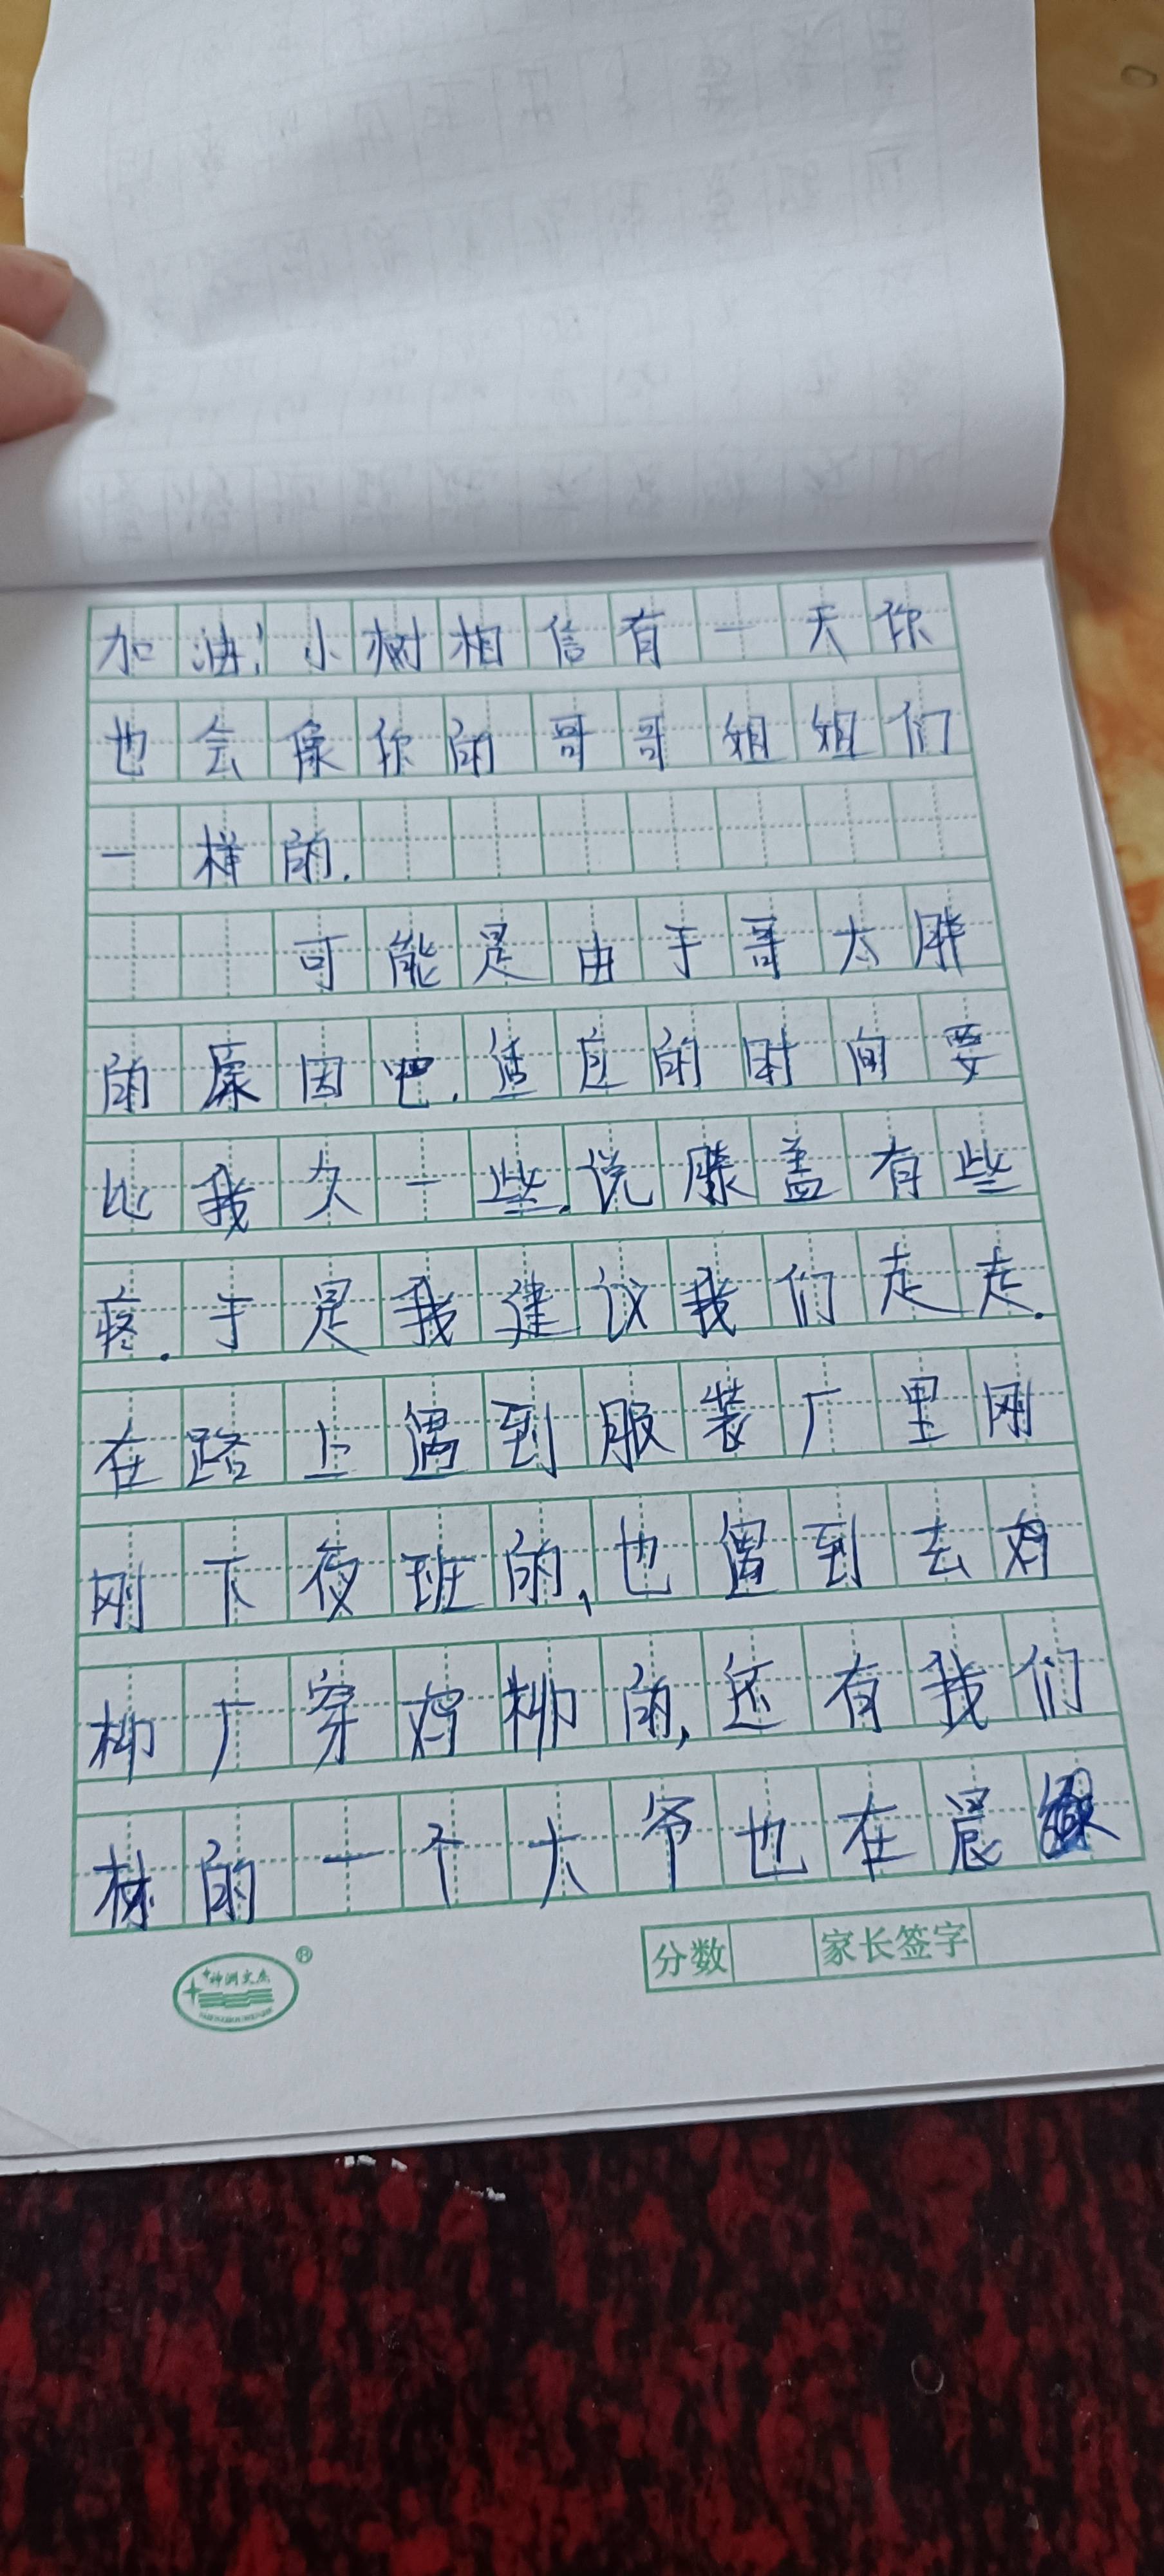 加油!小树相信有一天你
也会像你的哥哥姐姐们
一样的.
可能是由于哥太胖
的原因吧.适应的时间要
比我久一些.说膝盖有些
疼.于是我建议我们走走.
在路上遇到服装厂里刚
刚下夜班的,也遇到去鸡
柳厂穿鸡柳的,还有我们
林的一个大爷也在晨
分数 家长签字
神洲文杰